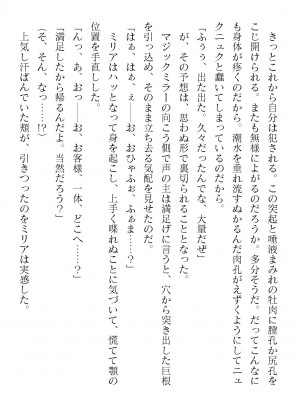 きっとこれから自分は犯される。この突起と唾液まみれの牡肉に膣孔か尻孔を
こじ開けられる。またも無様によがるのだろうか。多分そうだ、だってこんなに
も身体が疼くのだから。潮水を垂れ流すぬかるんだ肉孔がえずくようにしてニュ
クニュクと蠢いてしまっているのだから。
「ふぅぅ、出た出た。久々だったんでな、大量だぜ」
が、その予想は、思わぬ形で裏切られることとなった。
マジックミラーの向こう側で声の主は満足げに言うと、穴から突き出した巨根
を引っ込め、そのまま立ち去る気配を見せたのだ。
「はぁ、はぁ、ぇ――お、おひゃふぉ、ふぁま――？」
ミリアはハッとなって身を起こし、上手く喋れぬことに気づいて、慌てて顎の
位置を手直しした。
「んっ、あ、おっ――お、お客様、一体、どこへ――？」
「満足したから帰るんだよ。当然だろう？」
（そ、そん、なっ……！？）
上気し汗ばんでいた頬が、引きつったのをミリアは実感した。